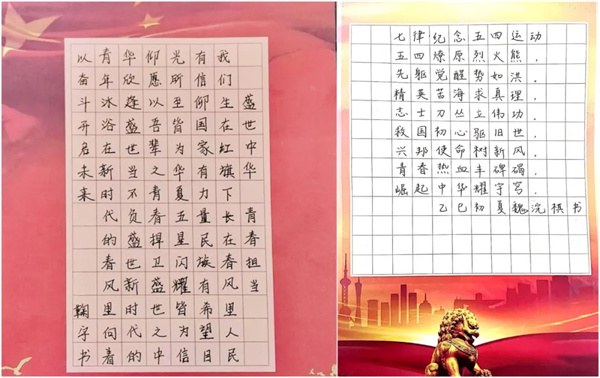 盛世中华 青春担当
我们生在红旗下长在春风里人民
有信仰国家有力量民族有希望目
光所至皆为华夏五星闪耀皆为信
仰愿以吾辈之青春捍卫盛世之中
华欣逢盛世当不负盛世新时代的
青年沐浴在新时代的春风里向着
以奋斗开启未来
字书
七律纪念五四运动
五四燎原烈火熊，
先驱觉醒势如洪。
精英苦海求真理，
志士刀丛立伟功。
救国初心驱旧世，
兴邦使命树新风。
青春热血丰碑碣，
崛起中华耀宇穹。
乙巳初夏魏浣棋书